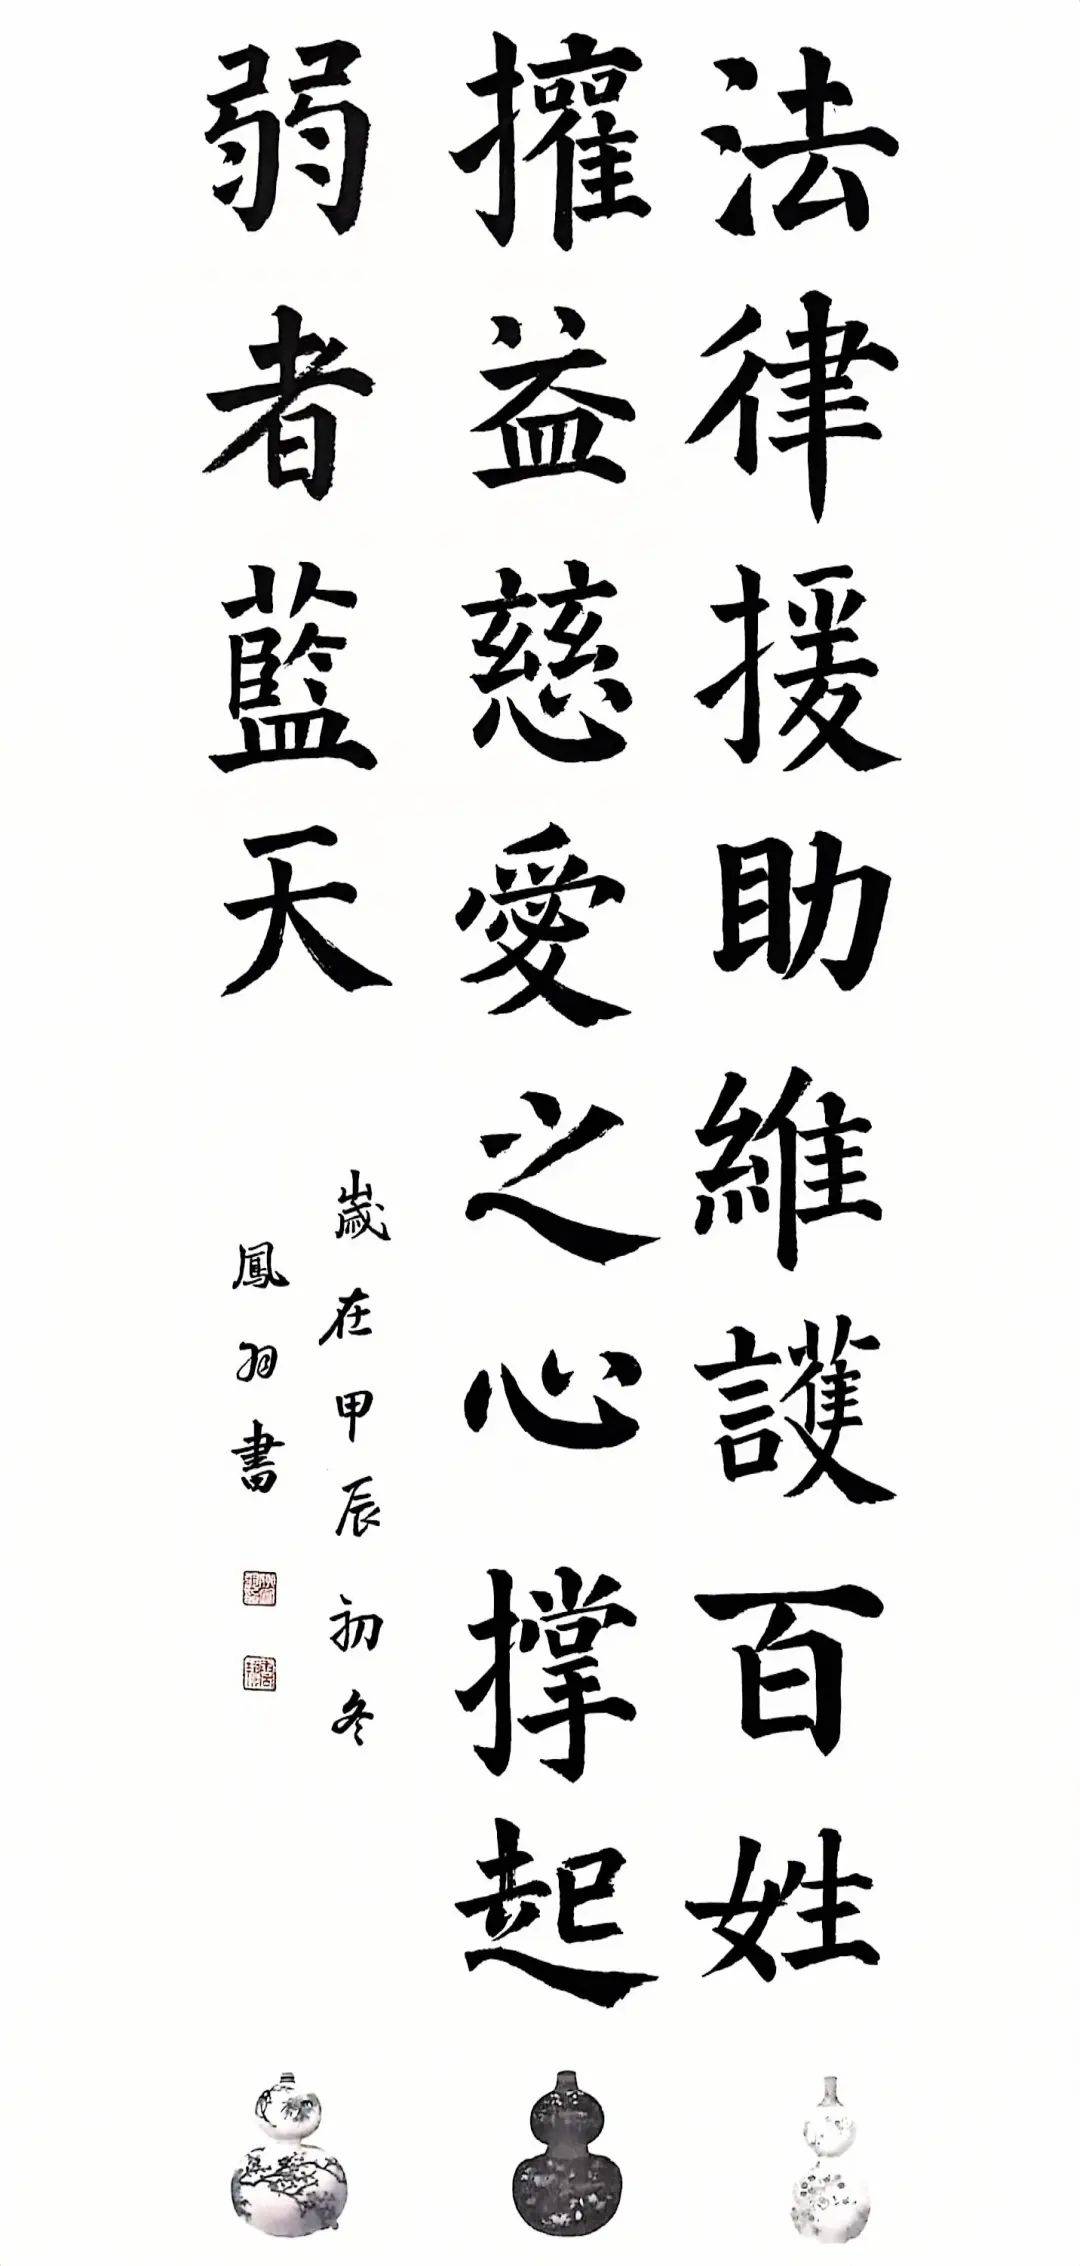 法律援助維護百姓
㩲益慈愛之心撑起
弱者藍天
歲在甲辰初冬
鳳羽書